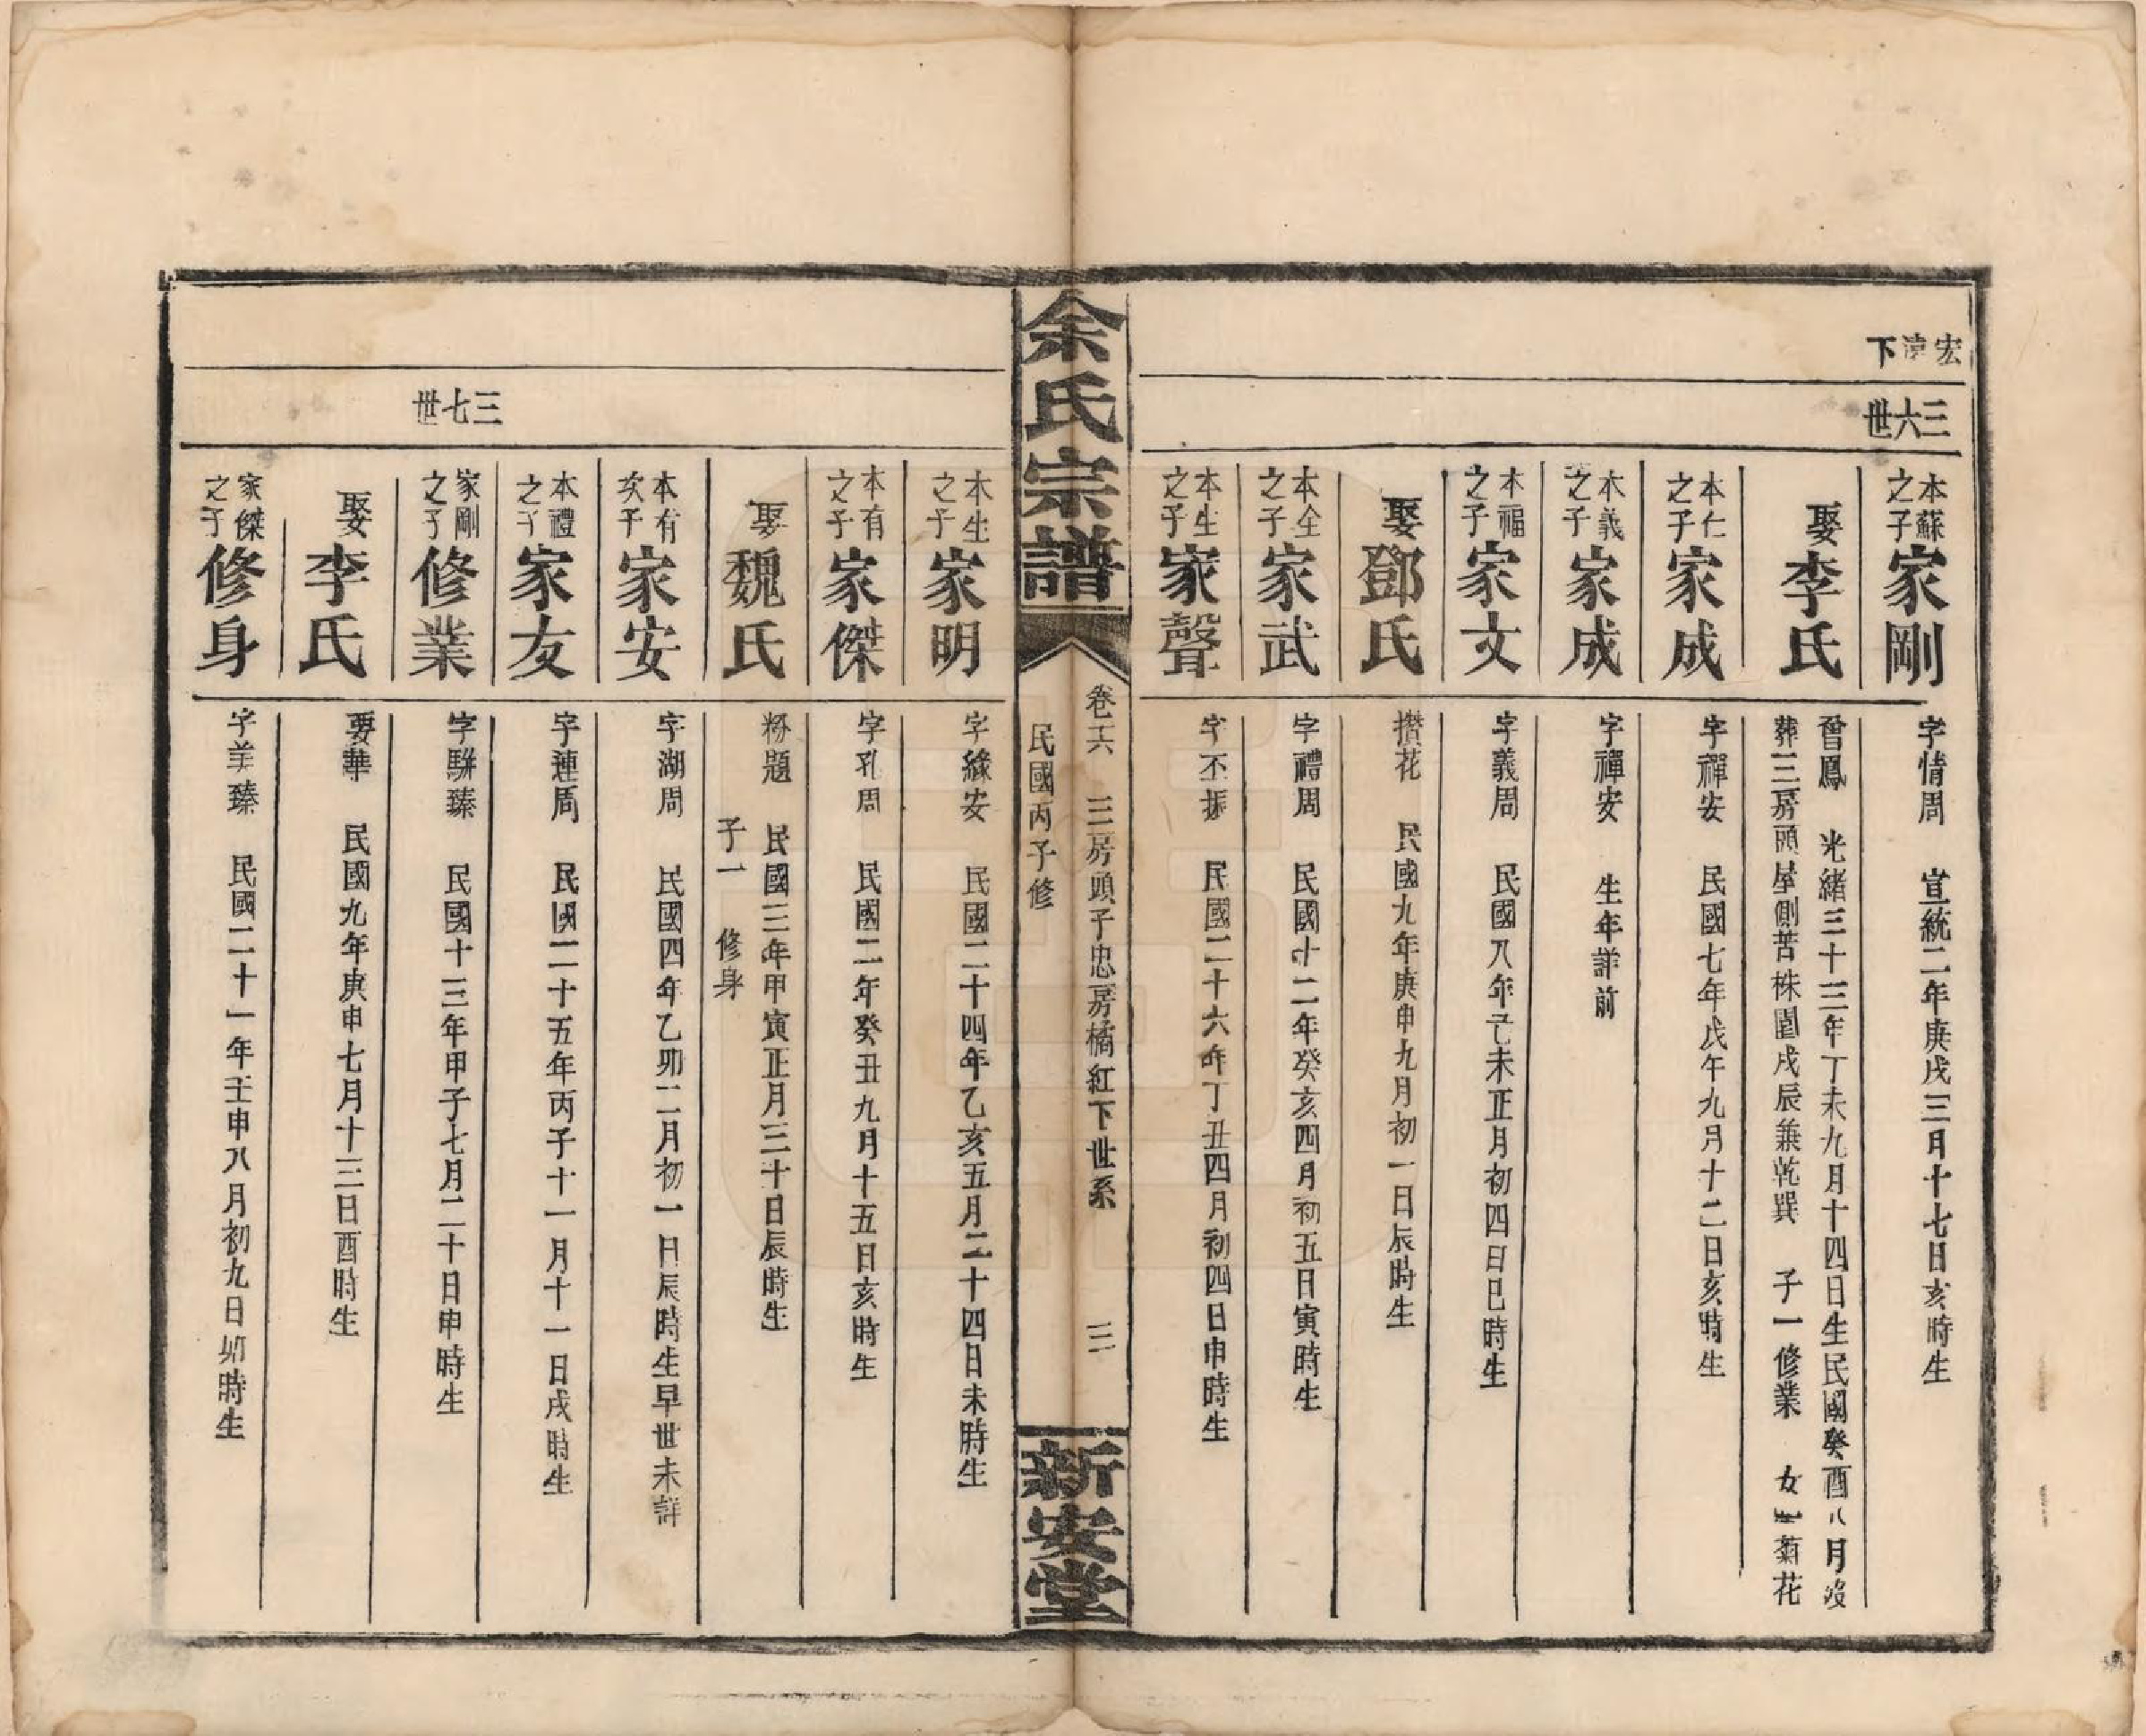 宏遠下
三六世
本蘇之子家剛
字情周 宣統二年庚戌三月十七日亥時生
娶李氏
曾鳳 光緒三十三年丁未九月十四日生民國癸酉八月歿
葬三房頭屋側苦株園戌辰兼乾巽 子一修業 女 菊花
本仁之子家成
字禪安 民國七年戊午九月十二日亥時生
本義之子家成
字禪安 生年詳前
本福之子家文
字義周 民國八年己未正月初四日巳時生
娶鄧氏
攢花 民國九年庚申九月初一日辰時生
本全之子家武
字禮周 民國十二年癸亥四月初五日寅時生
本生之子家聲
字丕振 民國二十六年丁丑四月初四日申時生
余氏宗譜
卷二六 三房頭子忠房橘紅下世系 三
民國丙子修
新安堂
本生之子家明
字緣安 民國二十四年乙亥五月二十四日未時生
本有之子家傑
字孔周 民國二年癸丑九月十五日亥時生
娶魏氏
粉題 民國三年甲寅正月三十日辰時生
子一 修身
本有次子家安
字湖周 民國四年乙卯二月初一日辰時生早世未詳
本禮之子家友
字連周 民國二十五年丙子十一月十一日戌時生
三七世
家剛之子修業
字騈臻 民國十三年甲子七月二十日申時生
娶李氏
要華 民國九年庚申七月十三日酉時生
家傑之子修身
字羊臻 民國二十一年壬申八月初九日卯時生